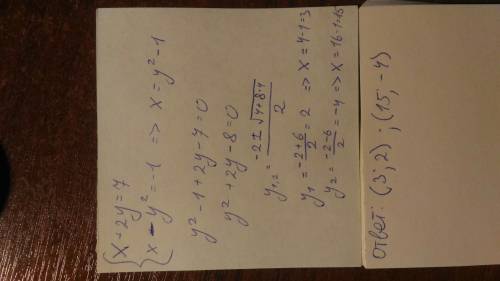 { x + 2y = 7
{ x - y² = -1 => x = y² - 1
y² - 1 + 2y - 7 = 0
y² + 2y - 8 = 0
y₁,₂ = (-2 ± √(4+8·4)) / 2
y₁ = (-2+6)/2 = 2 => x = 4-1=3
y₂ = (-2-6)/2 = -4 => x = 16-1=15
ответ: (3; 2) ; (15; -4)